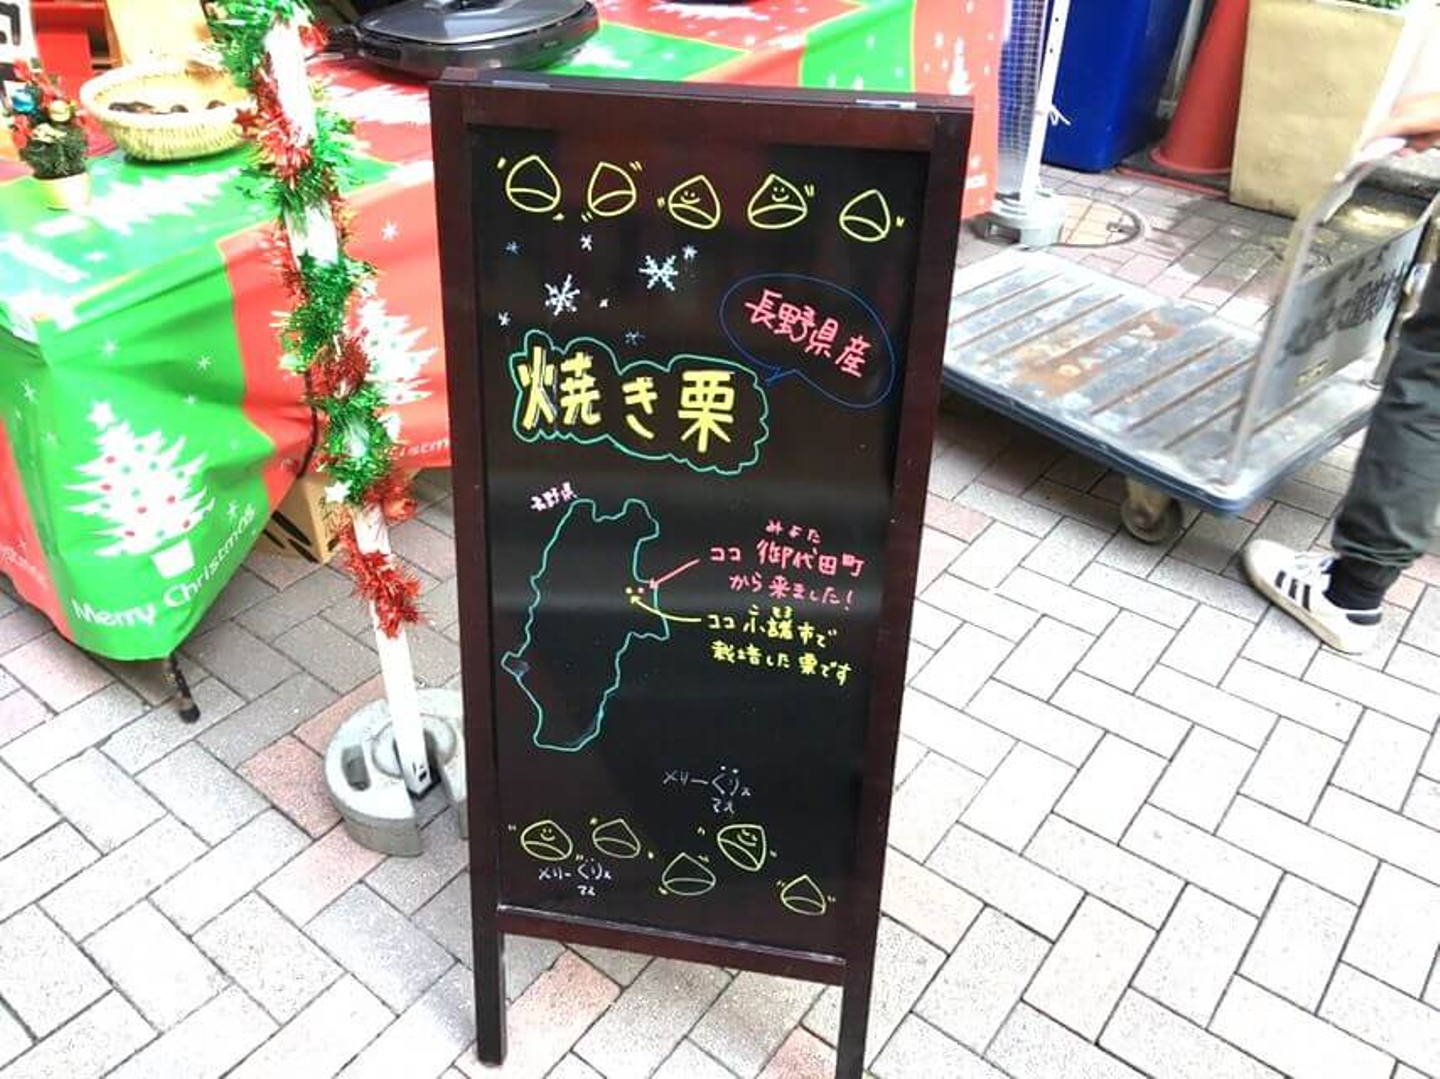 長野県産
焼き栗
長野県
みよた
ココ 御代田町
から来ました!
ココ 小諸市で
栽培した栗です
メリーくりぇ
メリーくりぇ
Merry Christmas